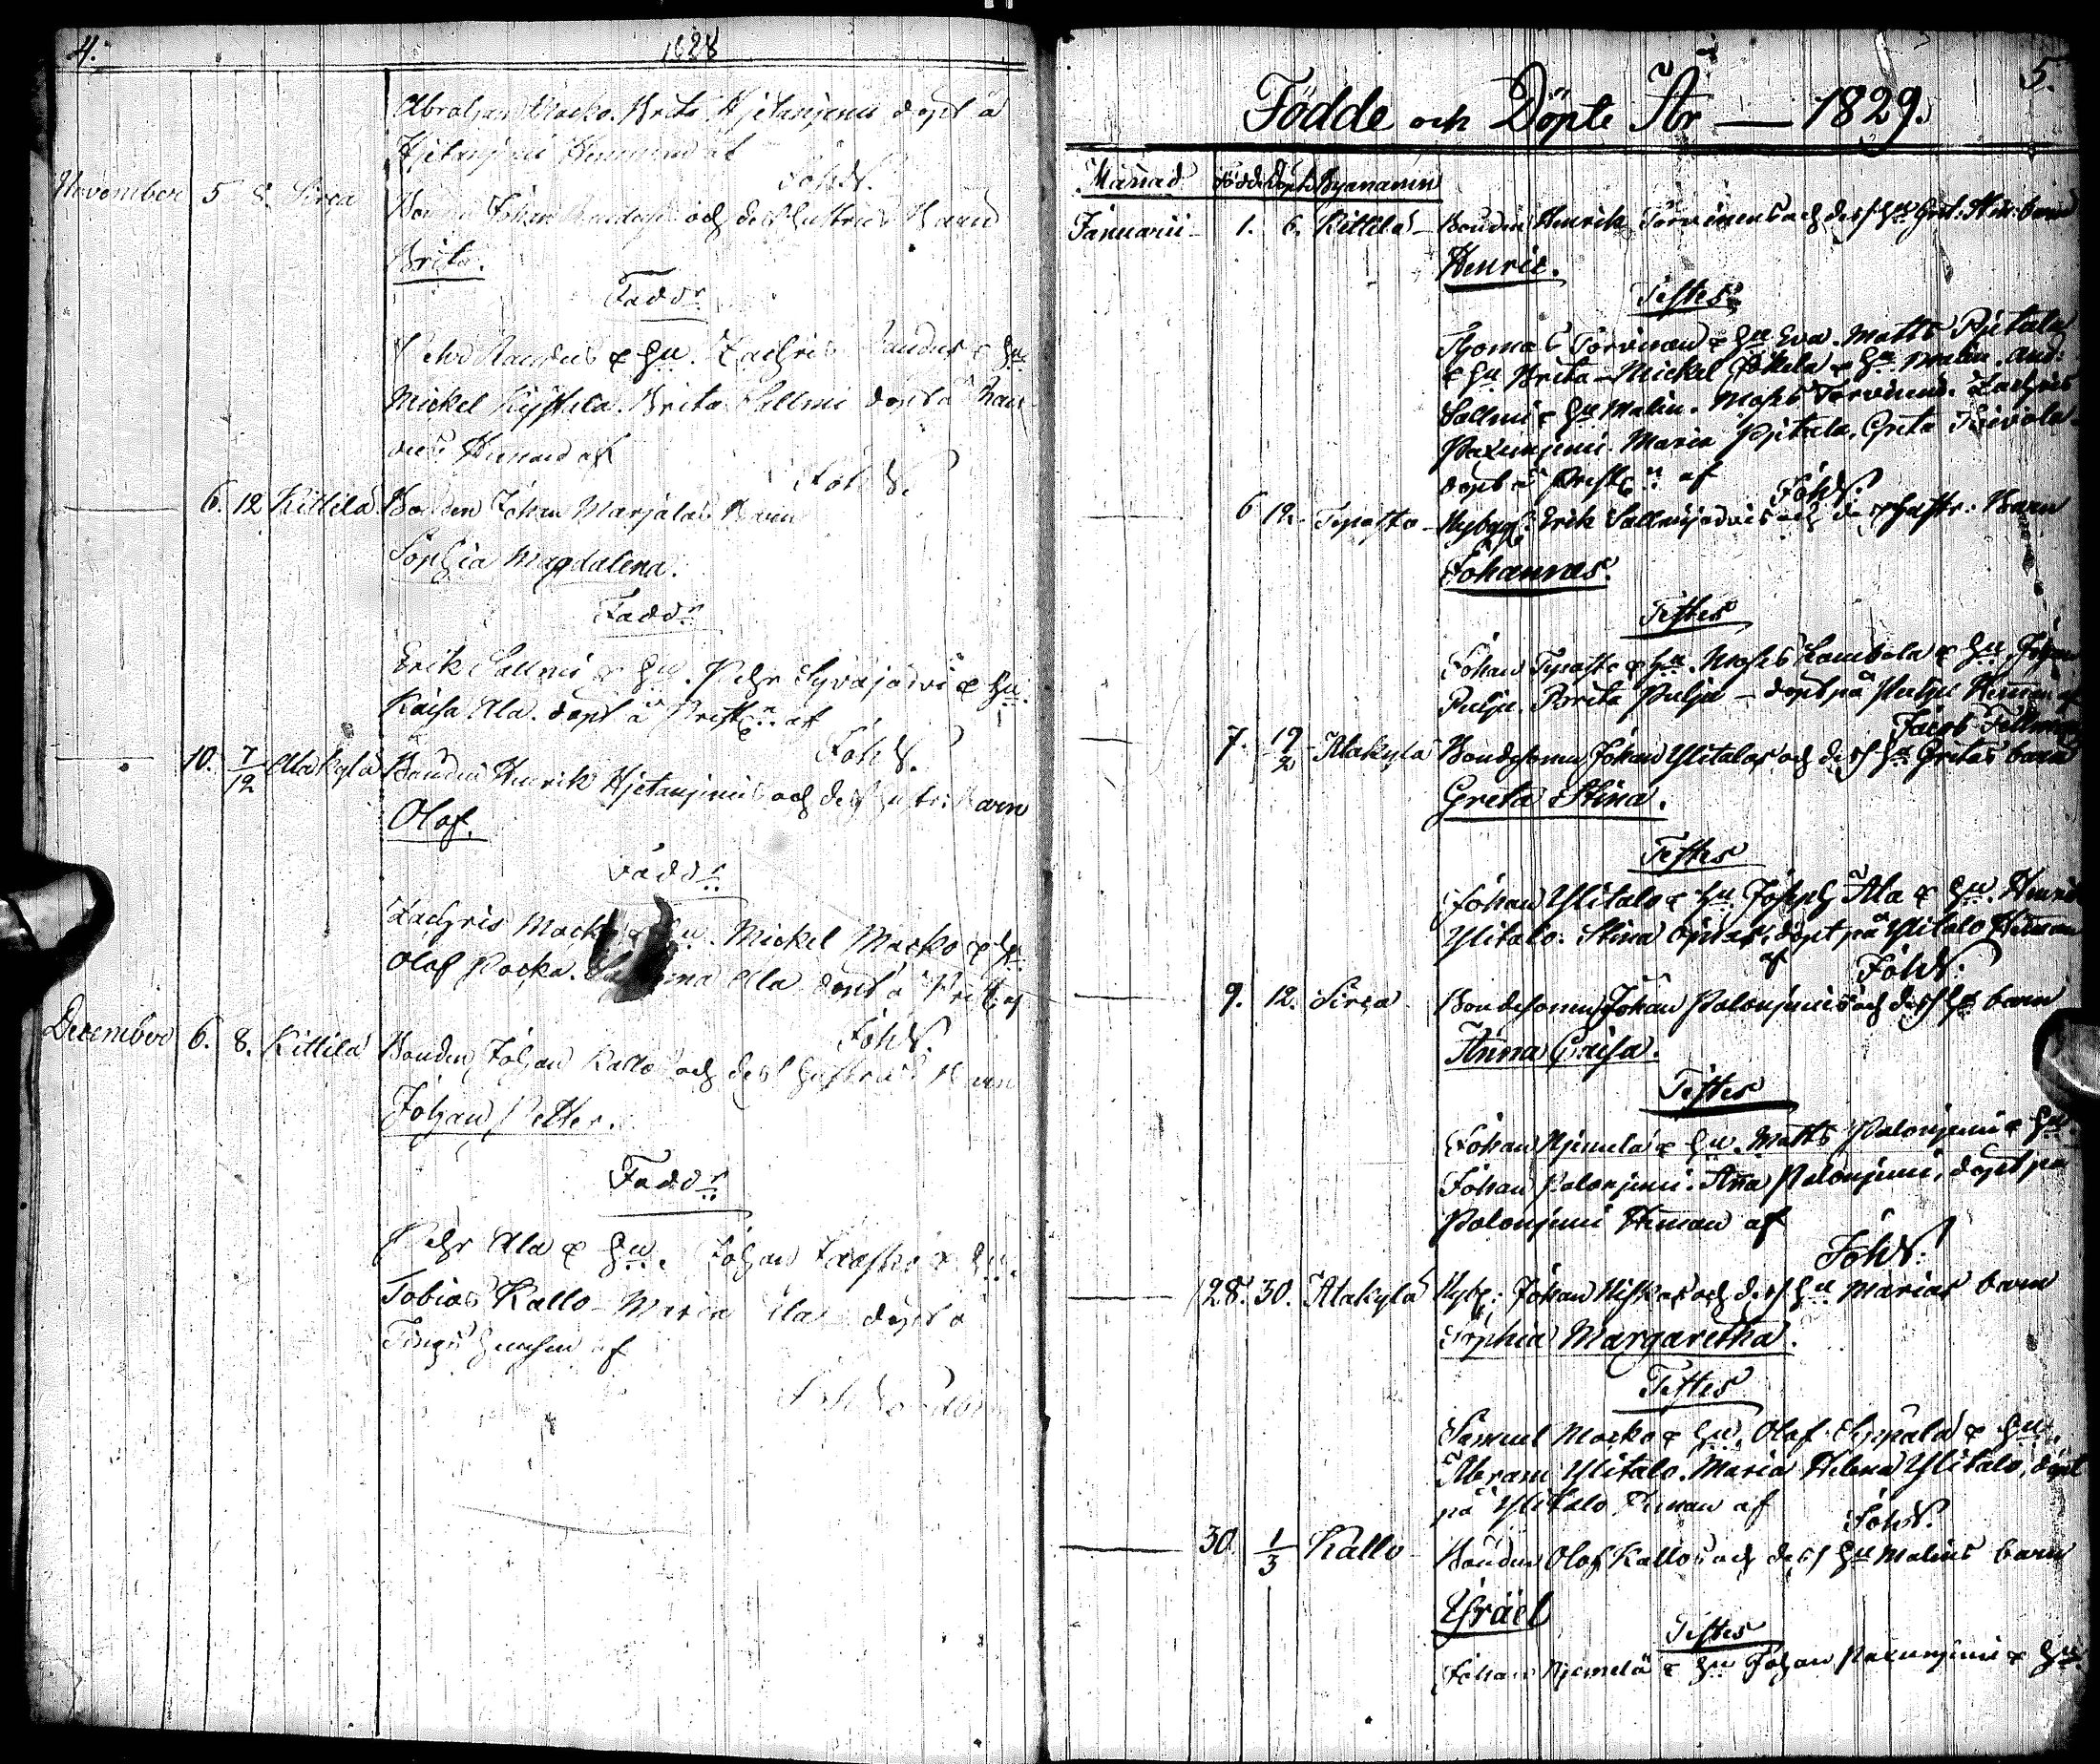 4.
1828
Abraham Macko. Brita Hjetanjemi döpt å
Hjetanjemi Hemmand af
Joh W.
November 5 8. Sirca Bonden Johan och dess hustrus Barn
Brita.
Faddr
Pehr Raudus & hu. Zachris Raudus & hu
Mickel Kyssela. Brita Sallmi döpt å Rau-
dus Hemand af
Joh W.
6. 12 Kittilä Bonden Johan Marjalas Barn
Sophia Magdalena.
Faddr
Erik Sallmi & hu. Pehr Syväjärvi & hu.
Kaisa Ala. döpt å Prestg af
Joh W.
10. 7/12 Alakylä Bonden Henrik Hjetanjemis och dess hustr. Barn
Olof.
Faddr
Zachris Macko & hu. Mickel Macko & h
Olof Packa. Ala döpt å Prestg af
Joh W.
December 6. 8. Kittilä Bonden Johan Kallo och dess hustrus Barn
Johan Petter.
Faddr
Pehr Ala & hu. Johan & hu.
Tobias Kallo - Maria Ala döpt å
Tings af
5.
Födde och Döpte År — 1829.
Månad Födde Döpte Byanamn
Januarii 1. 6. Kittilä - Bonden Henrik Torvinens och dess hu Gret: Hen: barn
Henric.
Testes
Thomas Torvinen & hu Eva. Matts Pjetala
& hu Brita - Mickel Jokela & hu Malin. And:
Sallmi & hu Malin. Moses Torvinen. Zachris
Paxunjemi. Maria Pjetala. Greta Toivola.
döpt å Prestg af
Joh W.
6 12. Tepasto - Nybygg: Erik Sallmijärvis och dess hustr: Barn
Johannes.
Testes
Johan Tepasto & hu. Moses Lambela & hu. Johan
Pulju. Brita Pulju - döpt på Pulju Heman af
Jacob Fellman
7. 19/2 Alakylä Bondesonen Johan Ylitalos och dess hu Gretas barn
Greta Stina.
Testes
Johan Ylitalo & hu Joseph Ala & hu. Henric
Ylitalo. Stina döpt på Ylitalo Heman
af Joh W.
9. 12. Sirca Bondesonen Johan Palonjemis och dess hu barn
Anna Caisa.
Testes
Johan Njemelä & hu. Matts Palonjemi & hu
Johan Palonjemi. Anna Palonjemi, döpt på
Palonjemi Heman af
Joh W.
28. 30. Alakylä Nyb: Johan Niskas och dess hu Marias barn
Sophia Margaretha.
Testes
Samuel Macko & hu, Olof Seppälä & hu.
Abram Ylitalo. Maria Helena Ylitalo, döpt
på Ylitalo Heman af
Joh W.
30. 1/3 Kallo - Bonden Olof Kallos och dess hu Malins barn
Israël
Testes
Johan Njemelä & hu Johan Paxunjemi & hu